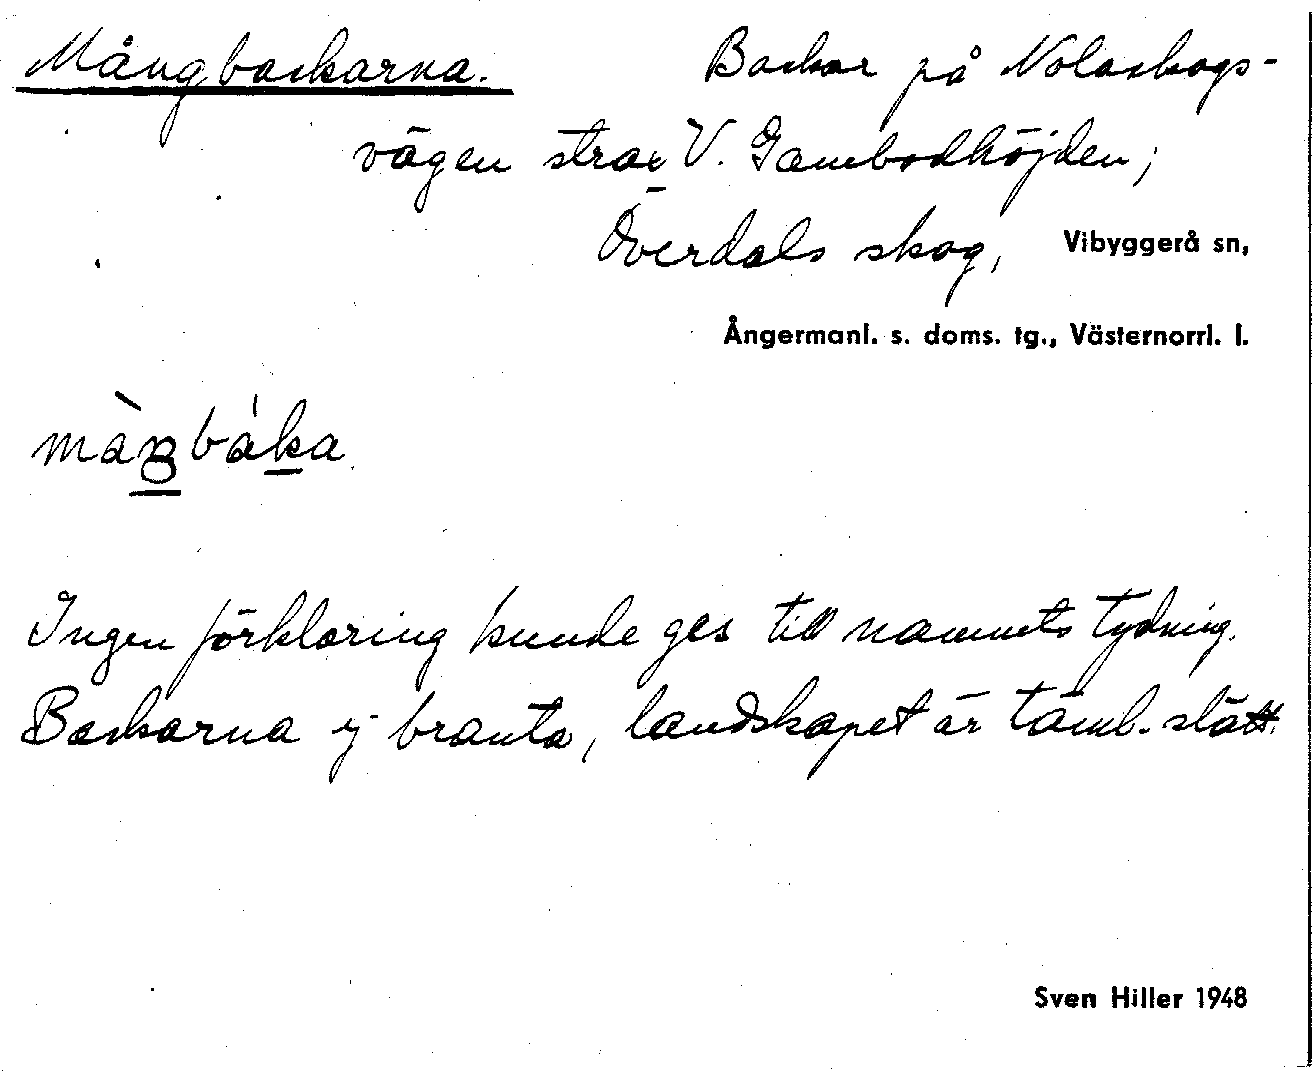 Mångbackarna. Backar på Nolaskogs-
vägen strax V. Gambodhöjden;
Överdals skog, Vibyggerå sn,
Ångermanl. s. doms. tg., Västernorrl. l.
Ingen förklaring kunde ges till namnets tydning.
Backarna ej branta, landskapet är täml. slätt.
Sven Hiller 1948